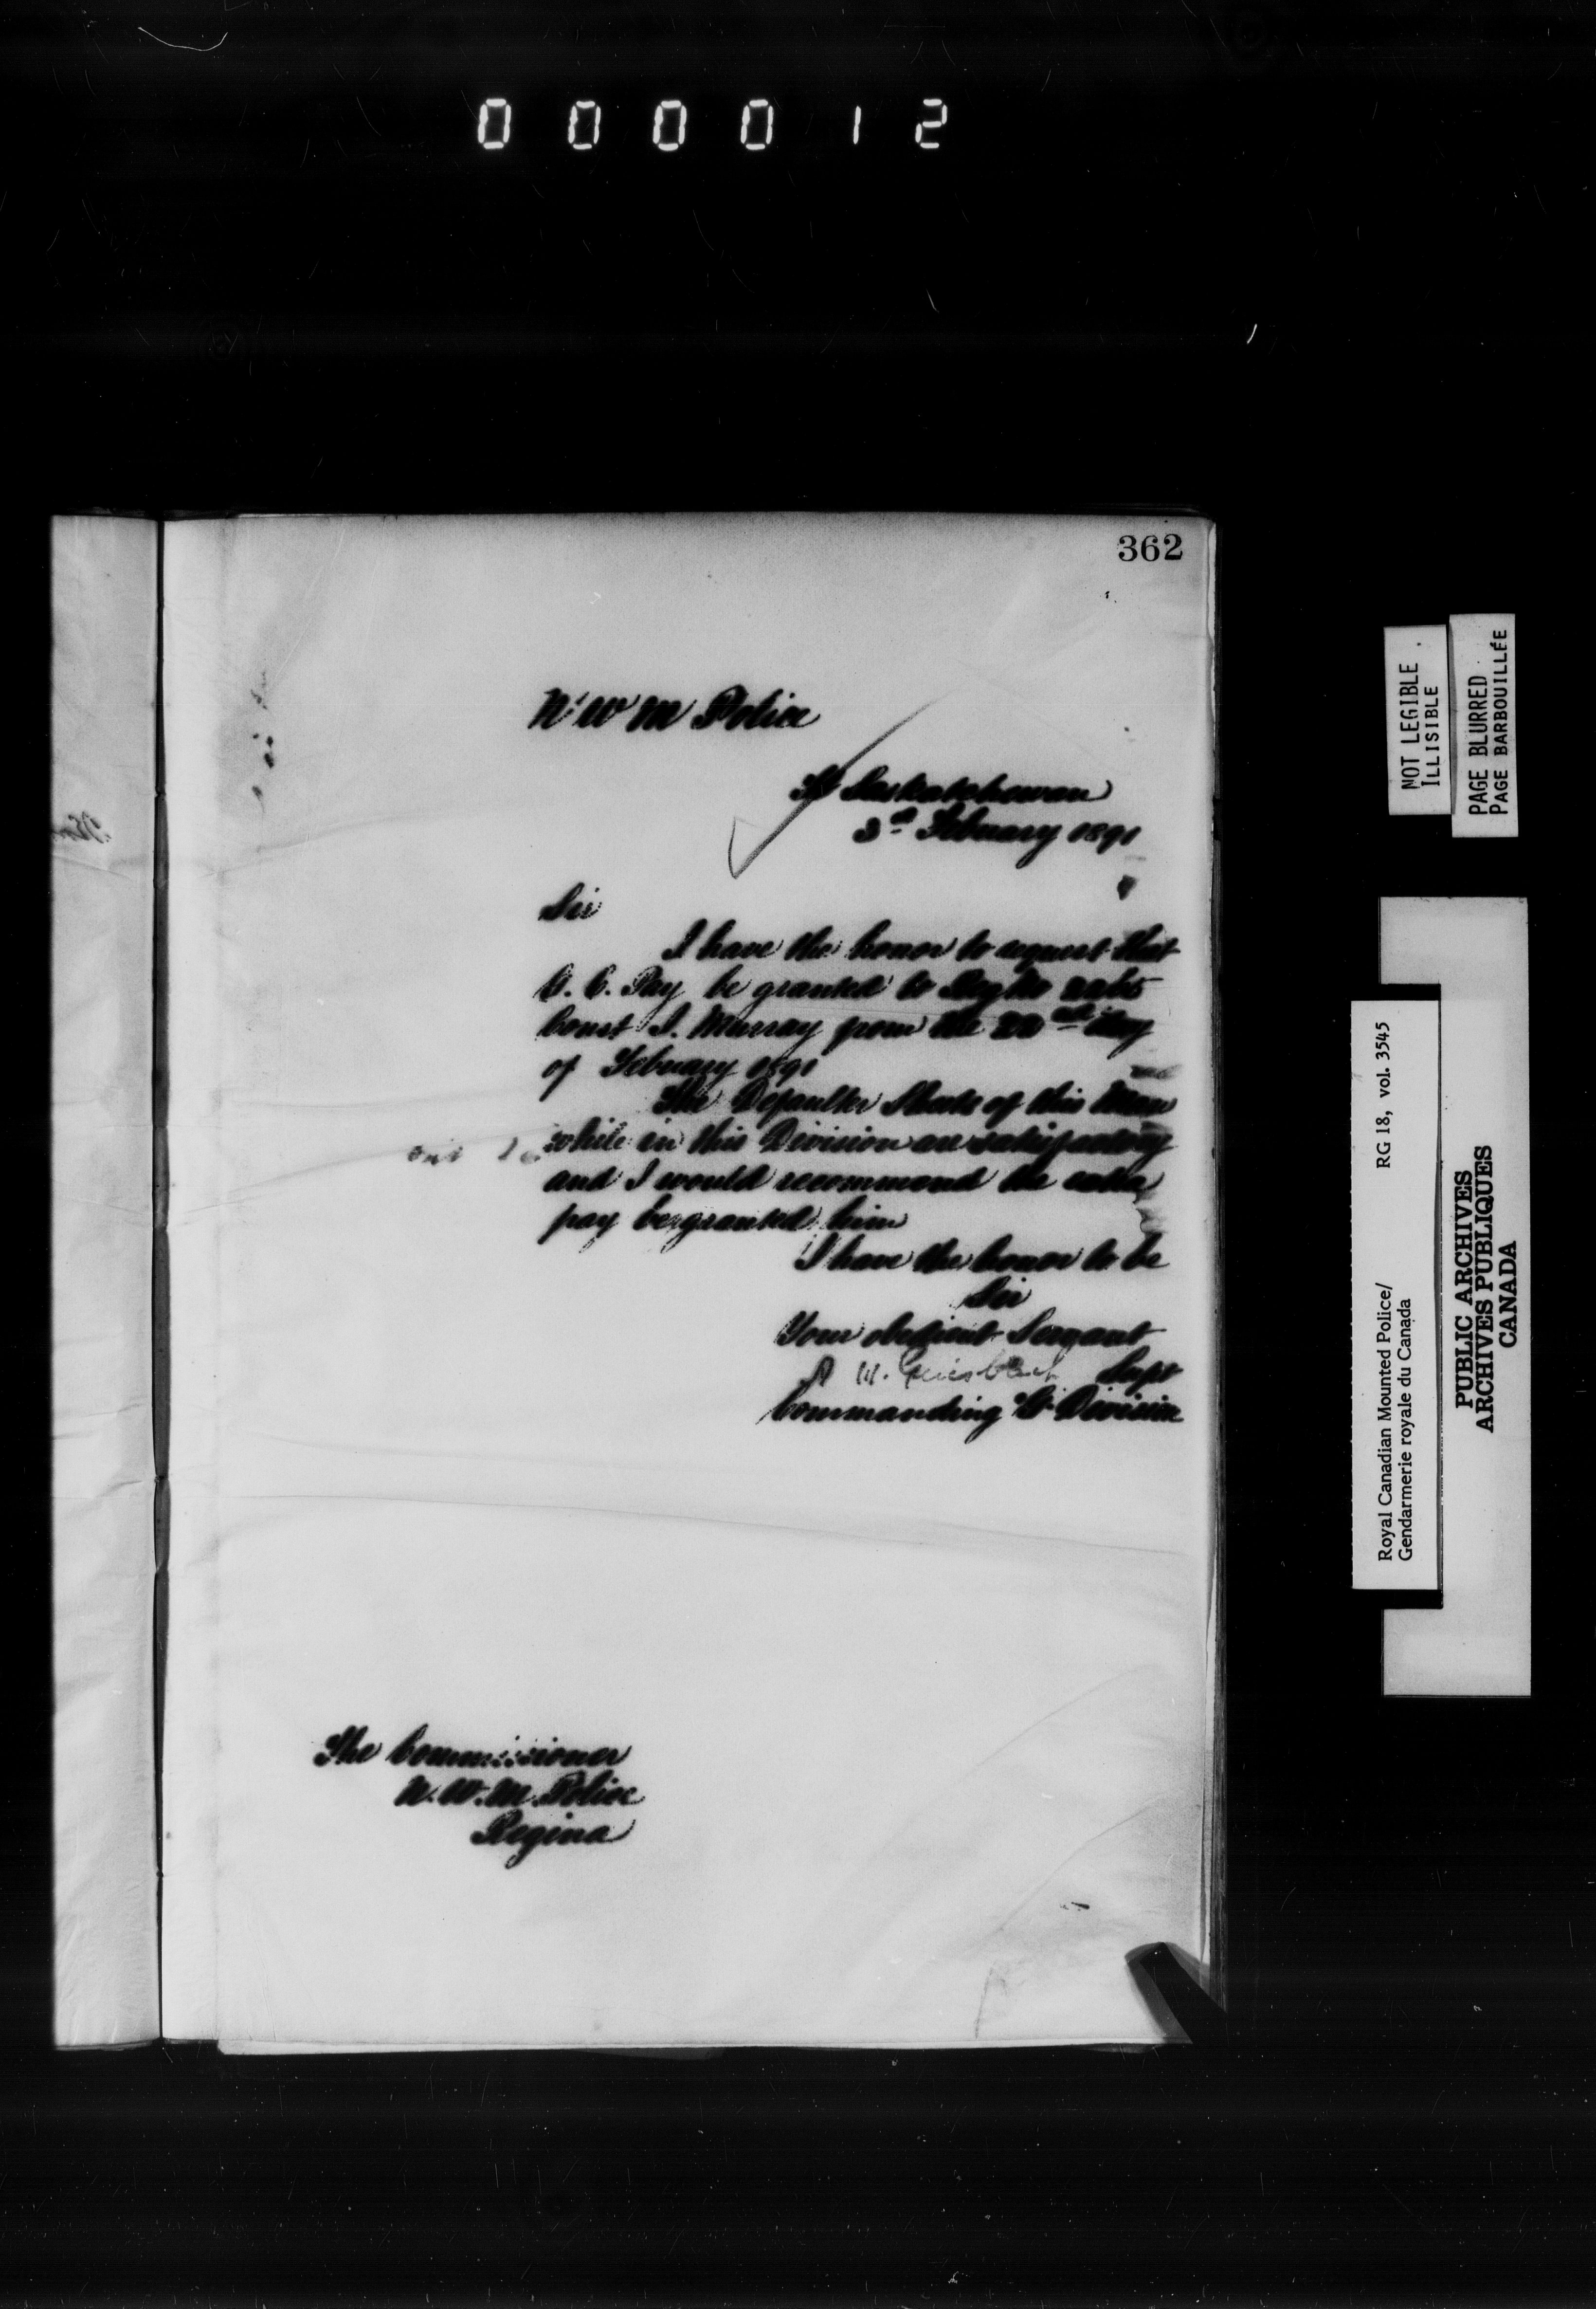 0 0 0 0 1 2
362
N. W. M Police
Ft Saskatchewan
3rd February 1891
Sir
I have the honor to request that
G. C. Pay be granted to Reg No
Const J. Murray from the day
of February 1891
The Defaulter Sheets of this Man
while in this Division are satisfactory
and I would recommend the extra
pay be granted him
I have the honor to be
Sir
Your obedient Servant
A W. Griesbach Supt
Commanding "G" Division
The Commissioner
N. W. M. Police
Regina
NOT LEGIBLE
ILLISIBLE
PAGE BLURRED
PAGE BARBOUILLÉE
Royal Canadian Mounted Police/ RG 18, vol. 3545
Gendarmerie royale du Canada
PUBLIC ARCHIVES
ARCHIVES PUBLIQUES
CANADA